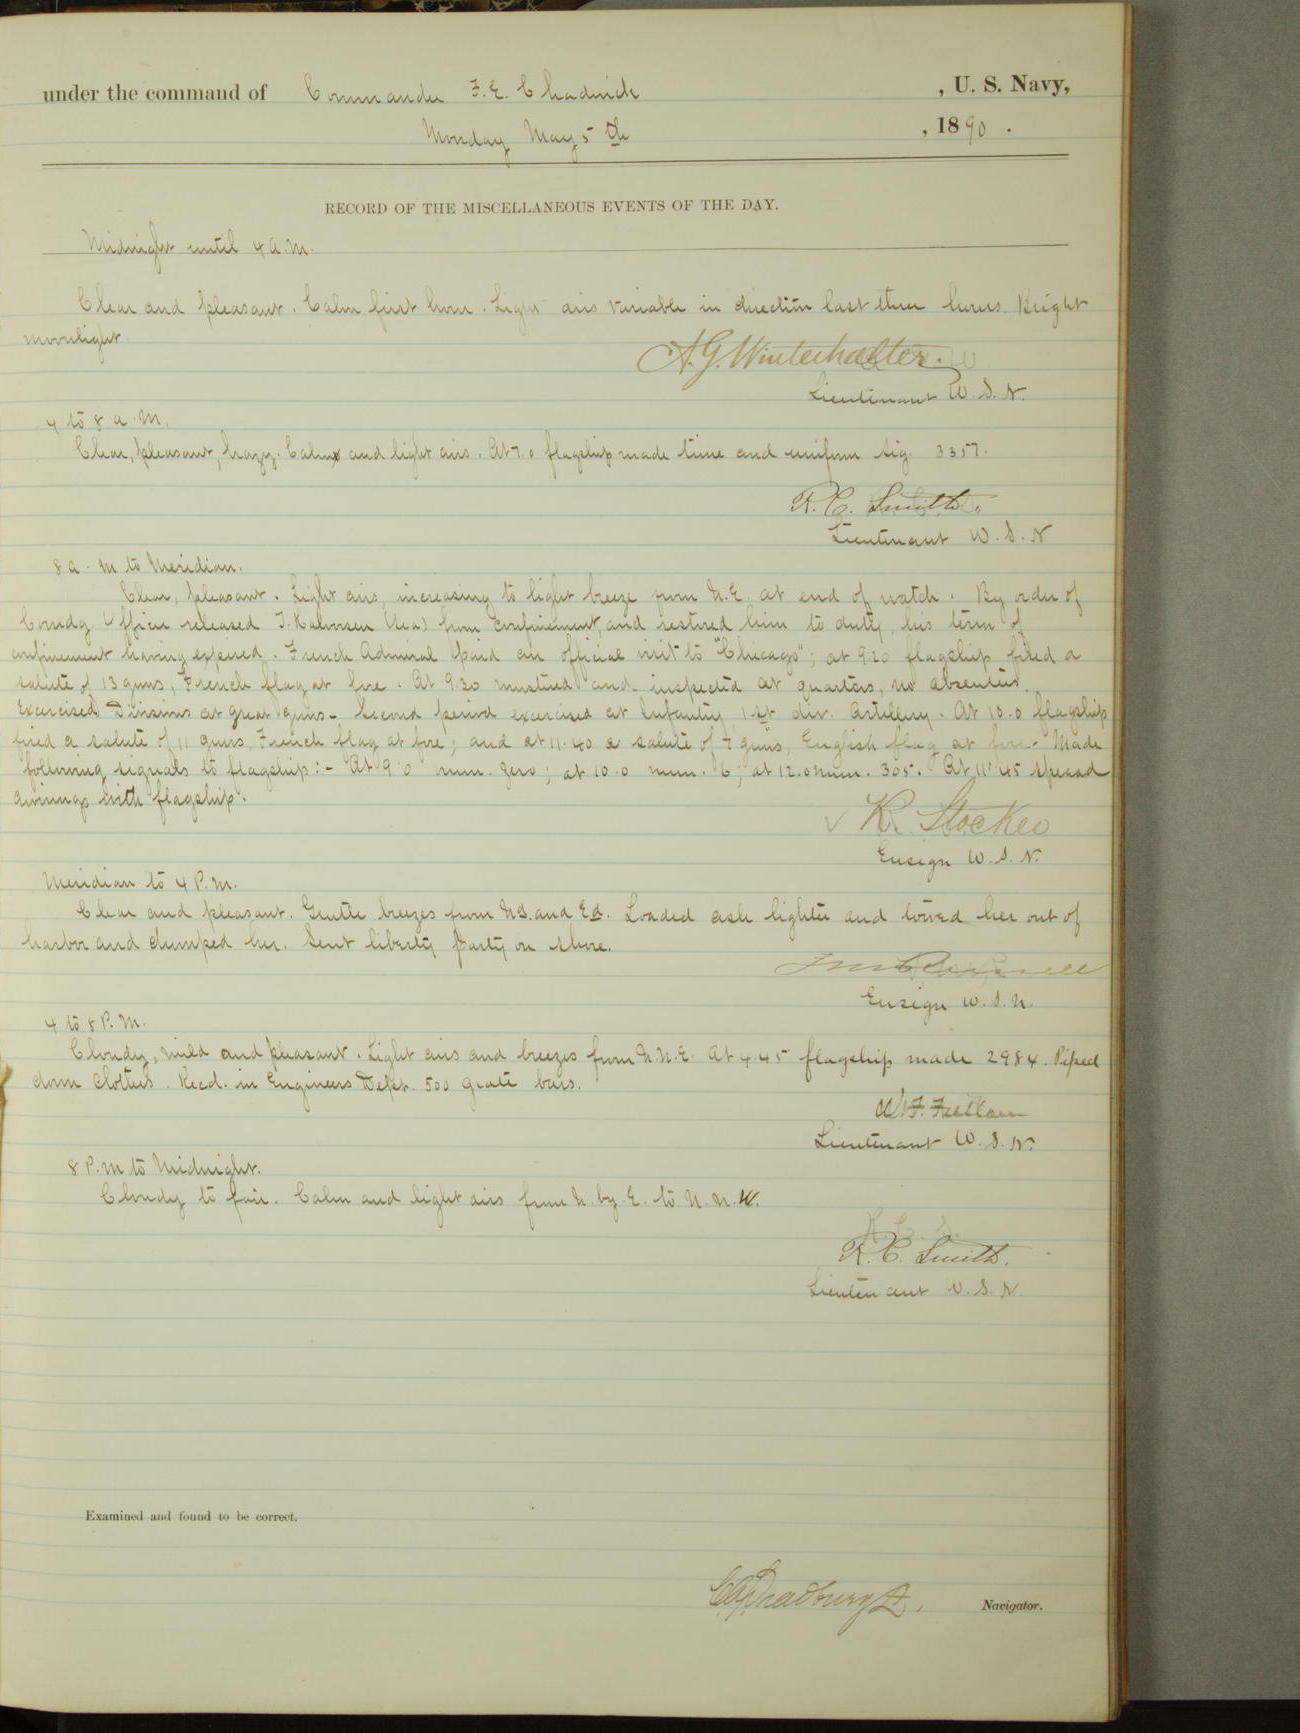 under the command of Commander F. E. Chadwick , U. S. Navy,
Monday May 5th , 1890.
RECORD OF THE MISCELLANEOUS EVENTS OF THE DAY.
Midnight until 4 A.M.
Clear and pleasant. Calm first hour. Light airs variable in direction last three hours. Bright
moonlight.
A. G. Winterhalter.
Lieutenant U.S.N.
4 to 8 a.m.
Clear, pleasant, hazy. Calm and light airs. At 7.0 flagship made time and uniform sig. 3357.
R. C. Smith.
Lieutenant U.S.N
8 a.m to Meridian.
Clear, pleasant. Light airs, increasing to light breeze from N.E. at end of watch. By order of
Comdg Officer released T. Halvorsen (Sea) from confinement, and restored him to duty, his term of
confinement having expired. French Admiral paid an official visit to "Chicago"; at 9.20 flagship fired a
salute of 13 guns, French flag at fore. At 9.30 mustered and inspected at quarters, no absentees.
Exercised Divisions at great guns. Second period exercised at Infantry, 1st div. Artillery. At 10.0 flagship
fired a salute of 11 guns, French flag at fore; and at 11.40 a salute of 7 guns, English flag at fore. Made
following signals to flagship:- At 9.0 num. zero; at 10.0 num. 6; at 12.0 num. 305. At 11.45 spread
awnings with flagship.
Ensign U.S.N.
Meridian to 4 P.M.
Clear and pleasant. Gentle breezes from Nd. and Ed. Loaded ash lighter and towed her out of
harbor and dumped her. Sent liberty party on shore.
Ensign U.S.N.
4 to 8 P.M.
Cloudy, mild and pleasant. Light airs and breezes from N.N.E. At 4.45 flagship made 2984. Piped
down clothes. Recd. in Engineers Dept. 500 grate bars.
W. F. Fullam
Lieutenant U.S.N.
8 P.M to Midnight.
Cloudy to fair. Calm and light airs from N. by E. to N.N.W.
R. C. Smith.
Lieutenant U.S.N.
Examined and found to be correct.
Navigator.